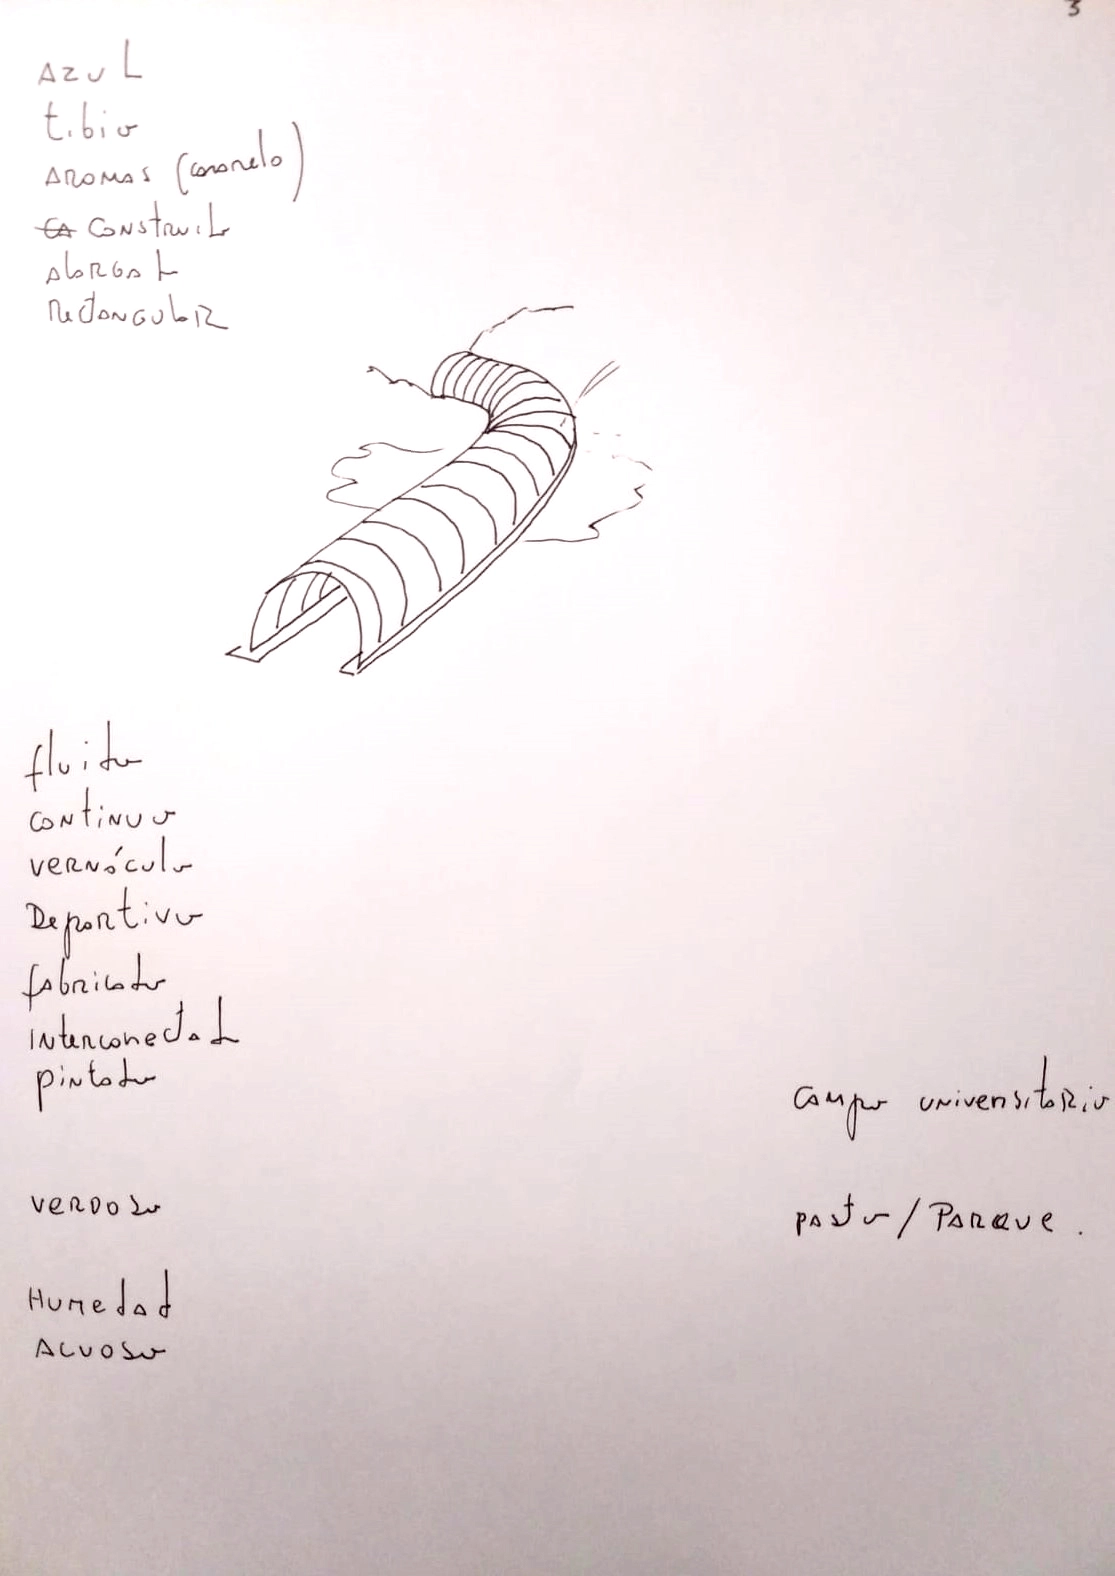 3
AZUL
tibio
AROMAS (caramelo)
CA CONSTRUIDO
ALARGADO
RECTANGULAR
fluido
CONTINUO
VERNÁCULO
Deportivo
fabricado
INTERCONECTADO
pintado
CAMPO UNIVERSITARIO
VERDOSO
PASTO / PARQUE.
HUMEDAD
ACUOSO